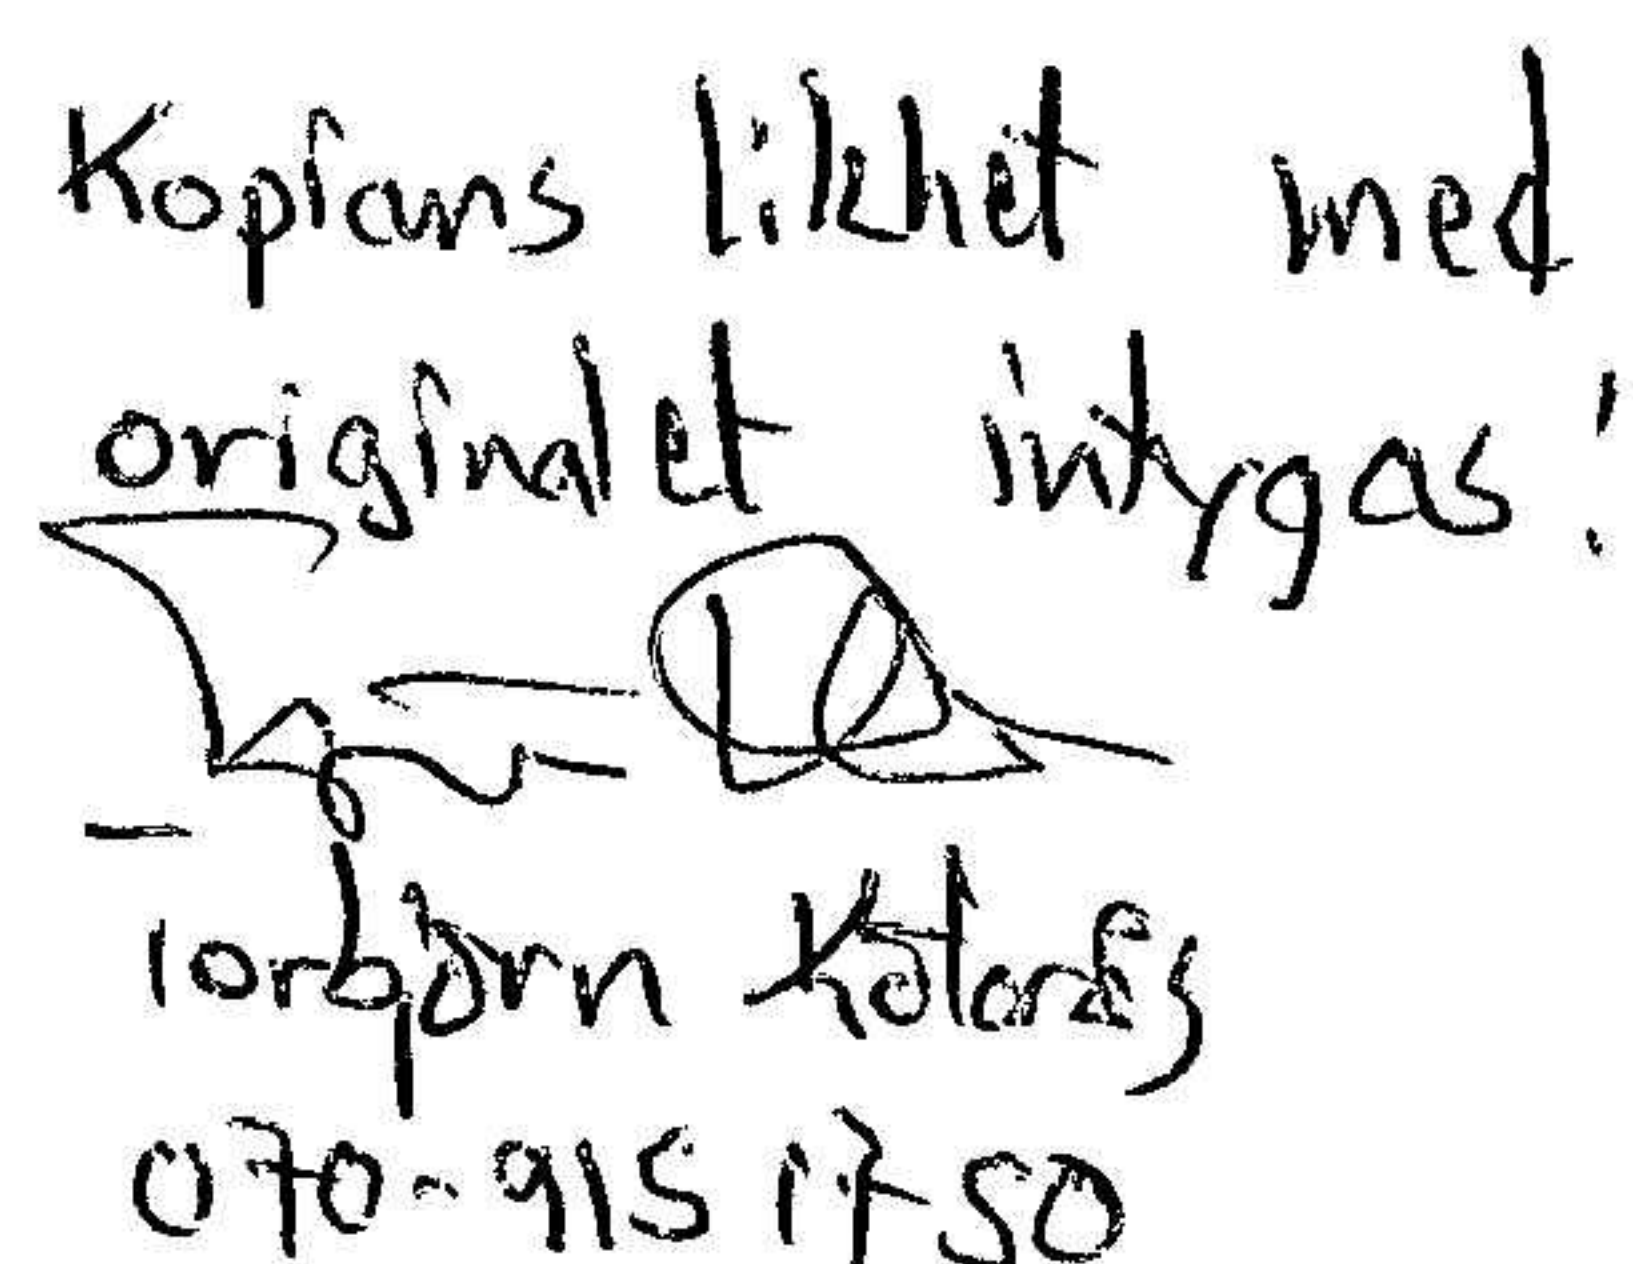 Kopians likhet med
originalet intygas!
Torbjörn
070-915 17 50